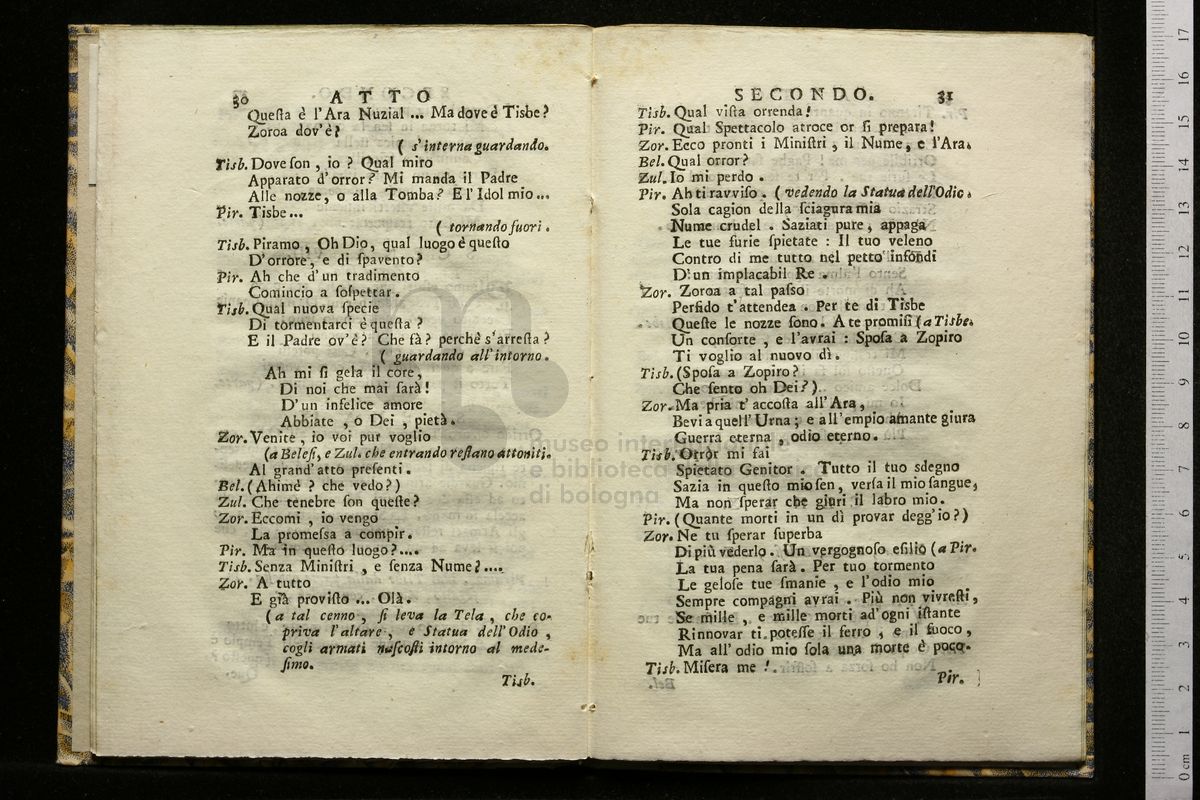 30 ATTO
Queſta è l'Ara Nuzial ... Ma dove è Tisbe?
Zoroa dov'è?
( s'interna guardando.
Tisb. Dove ſon , io ? Qual miro
Apparato d'orror? Mi manda il Padre
Alle nozze, o alla Tomba? E l'Idol mio...
Pir. Tisbe...
( tornando fuori .
Tisb. Piramo , Oh Dio, qual luogo è queſto
D'orrore, e di ſpavento?
Pir. Ah che d'un tradimento
Comincio a ſoſpettar.
Tisb. Qual nuova ſpecie
Di tormentarci è queſta ?
E il Padre ov'è? Che fà? perchè s'arreſta?
( guardando all'intorno.
Ah mi ſi gela il core,
Di noi che mai ſarà!
D'un infelice amore
Abbiate , o Dei , pietà.
Zor. Venite , io voi pur voglio
(a Beleſi, e Zul. che entrando reſtano attoniti.
Al grand'atto preſenti.
Bel. (Ahimè ? che vedo?)
Zul. Che tenebre ſon queſte?
Zor. Eccomi , io vengo
La promeſsa a compir.
Pir. Ma in queſto luogo?....
Tisb. Senza Miniſtri , e ſenza Nume?....
Zor. A tutto
E già proviſto ... Olà.
(a tal cenno , ſi leva la Tela , che co-
priva l'altare , e Statua dell'Odio ,
cogli armati naſcoſti intorno al mede-
ſimo.
Tisb.
SECONDO. 31
Tisb. Qual viſta orrenda!
Pir. Qual Spettacolo atroce or ſi prepara!
Zor. Ecco pronti i Miniſtri , il Nume, e l'Ara.
Bel. Qual orror?
Zul. Io mi perdo .
Pir. Ah ti ravviſo . ( vedendo la Statua dell'Odio.
Sola cagion della ſciagura mia
Nume crudel . Saziati pure, appaga
Le tue furie ſpietate : Il tuo veleno
Contro di me tutto nel petto infondi
D'un implacabil Re .
Zor. Zoroa a tal paſso
Perfido t'attendea . Per te di Tisbe
Queſte le nozze ſono. A te promiſi (a Tisbe.
Un conſorte , e l'avrai : Spoſa a Zopiro
Ti voglio al nuovo dì.
Tisb. (Spoſa a Zopiro?
Che ſento oh Dei?)
Zor. Ma pria t'accoſta all'Ara,
Bevi a quell'Urna; e all'empio amante giura
Guerra eterna , odio eterno.
Tisb. Orror mi fai
Spietato Genitor . Tutto il tuo sdegno
Sazia in queſto mio ſen, verſa il mio ſangue,
Ma non ſperar che giuri il labro mio.
Pir. (Quante morti in un dì provar degg'io?)
Zor. Ne tu ſperar ſuperba
Di più vederlo . Un vergognoſo eſilio (a Pir.
La tua pena ſarà . Per tuo tormento
Le geloſe tue ſmanie , e l'odio mio
Sempre compagni avrai . Più non vivreſti,
Se mille , e mille morti ad'ogni iſtante
Rinnovar ti poteſſe il ferro , e il fuoco,
Ma all'odio mio ſola una morte è poco.
Tisb. Miſera me !
Pir.
museo internazionale
e biblioteca
di bologna